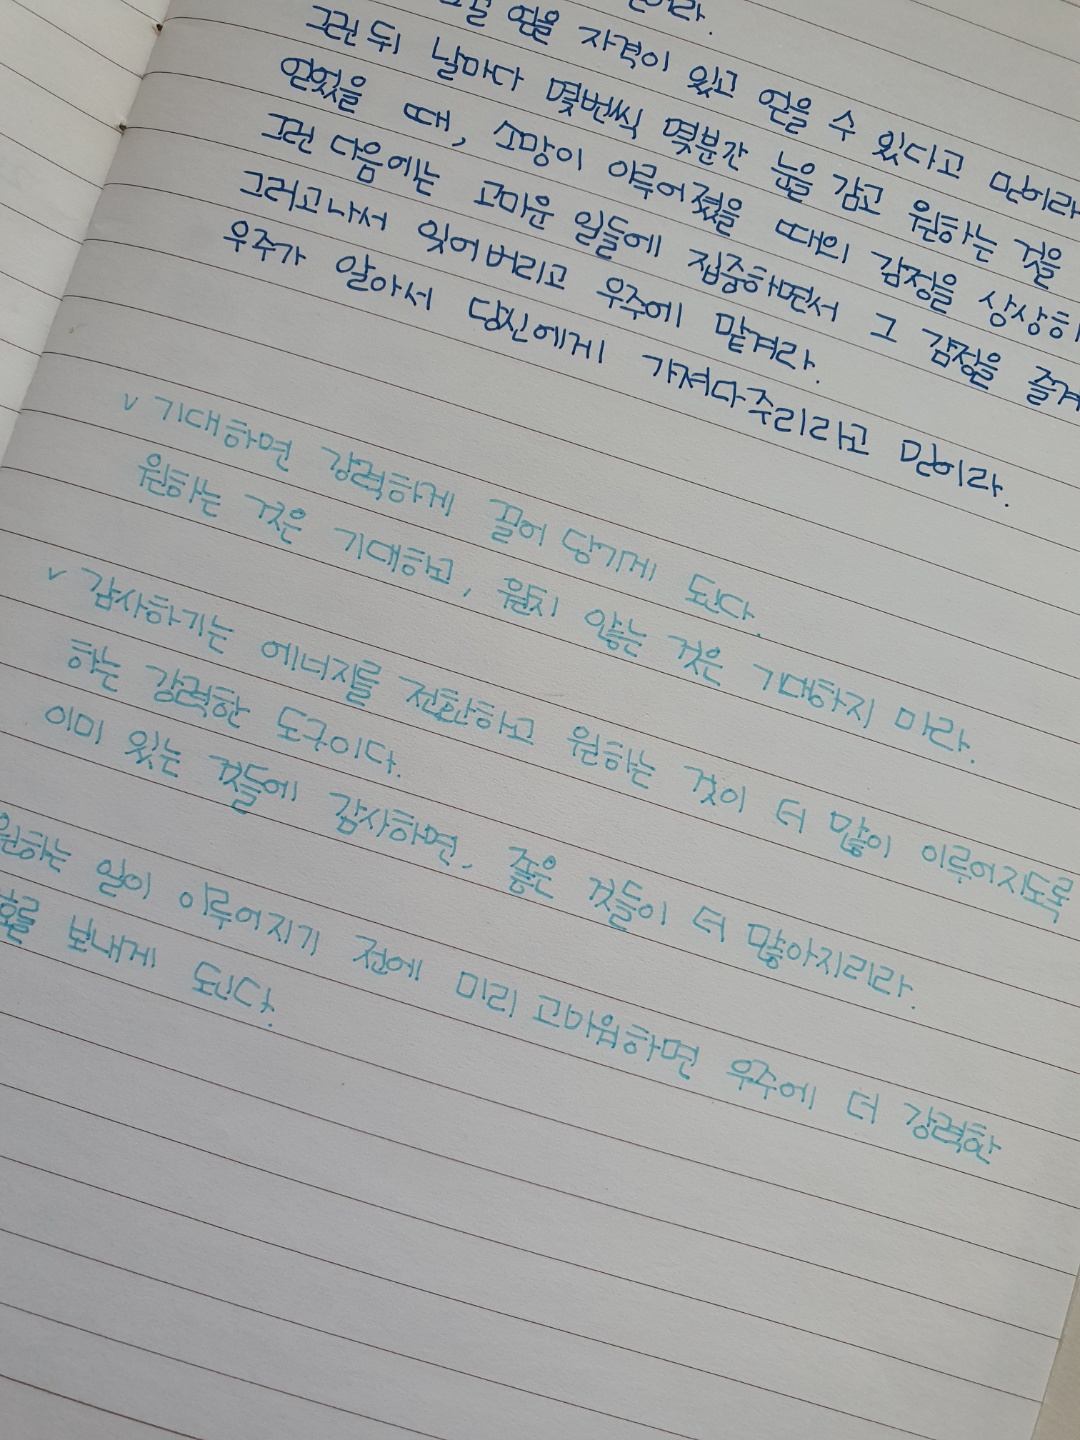 자격이 있고 얻을 수 있다고 믿어라
그런 뒤 날마다 몇번씩 몇분간 눈을 감고 원하는 것을
얻었을 때, 소망이 이루어졌을 때의 감정을 상상하
그런 다음에는 고마운 일들에 집중하면서 그 감정을 즐겨
그러고나서 잊어버리고 우주에 맡겨라.
우주가 알아서 당신에게 가져다주리라고 믿어라.
v 기대하면 강력하게 끌어 당기게 된다.
원하는 것은 기대하고, 원치 않는 것은 기대하지 마라.
v 감사하기는 에너지를 전환하고 원하는 것이 더 많이 이루어지도록
하는 강력한 도구이다.
이미 있는 것들에 감사하면, 좋은 것들이 더 많아지리라.
원하는 일이 이루어지기 전에 미리 고마워하면 우주에 더 강력한
호를 보내게 된다.